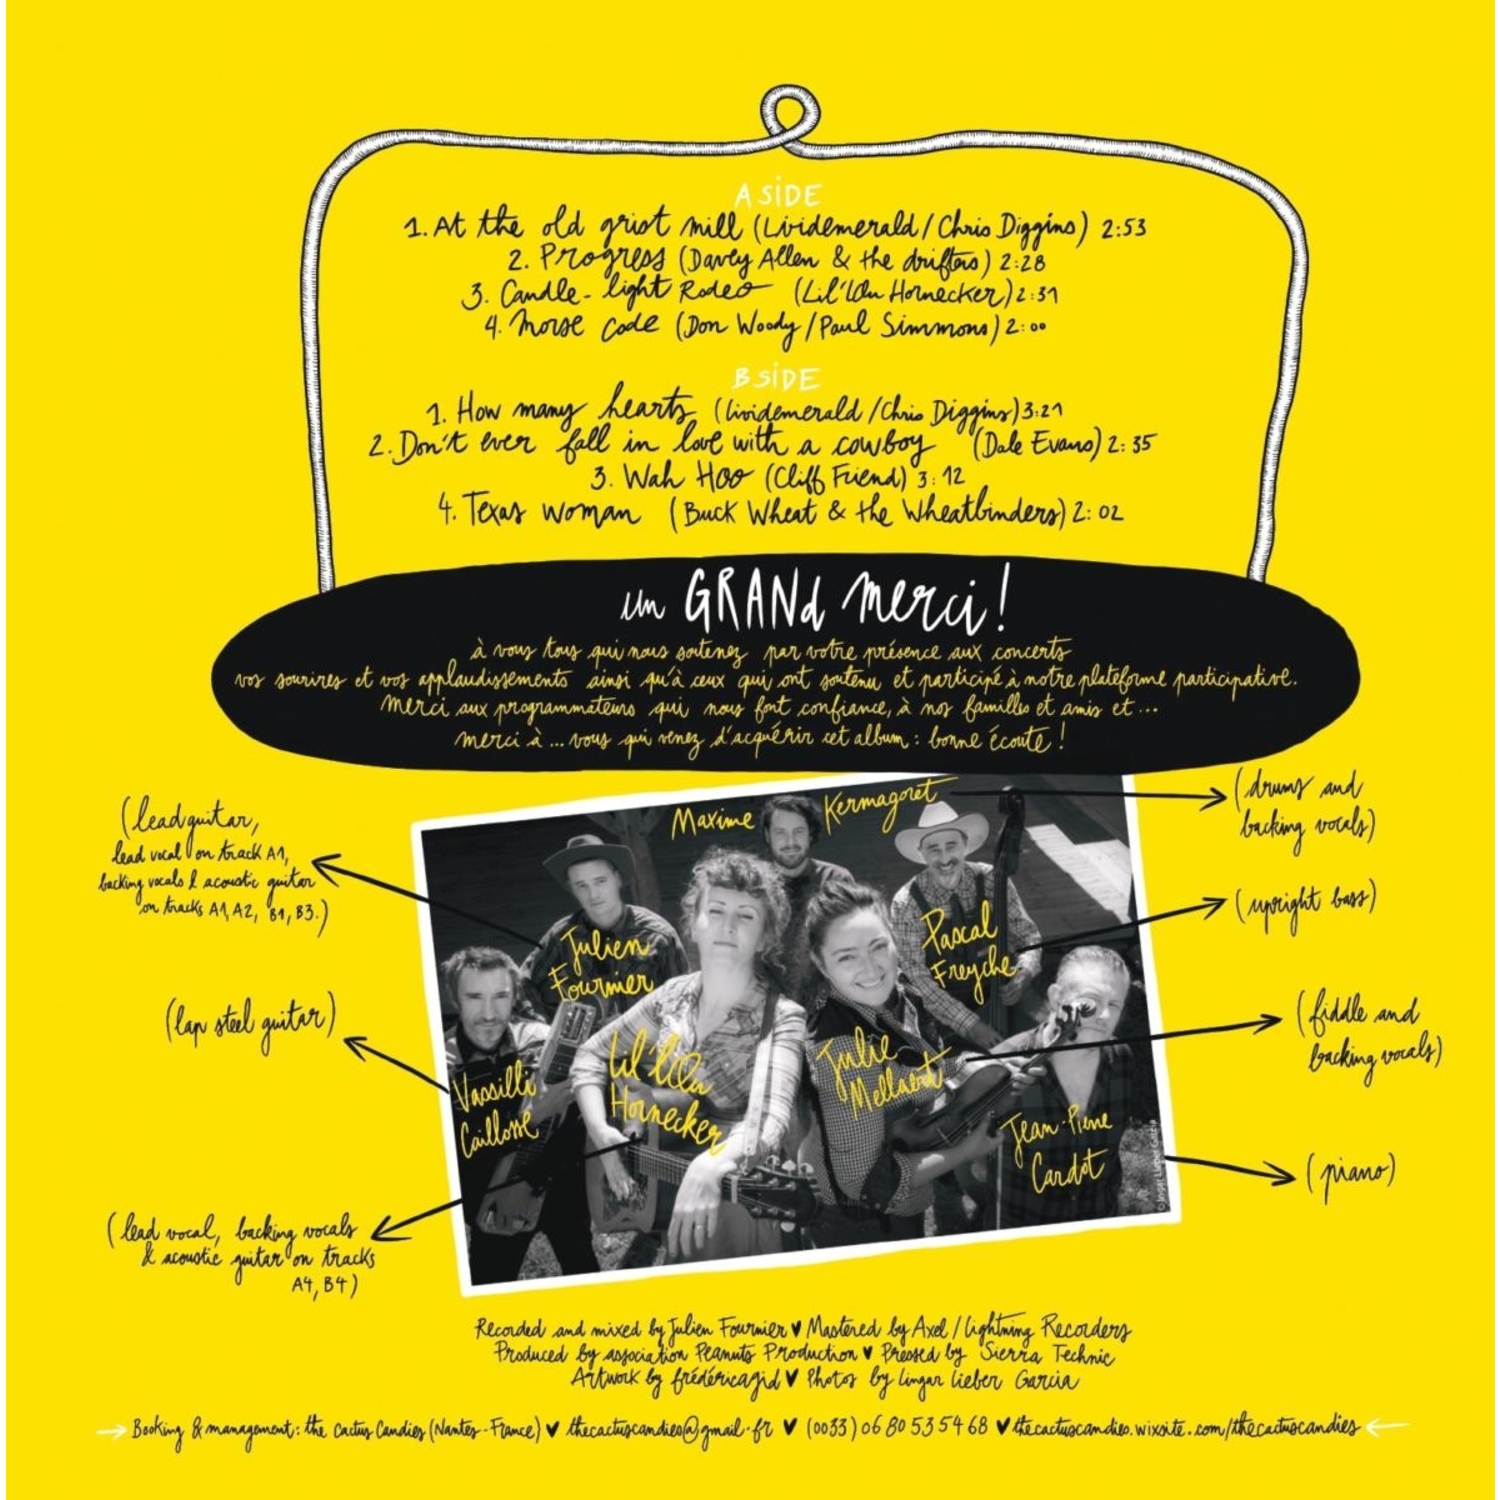 A SIDE
1. At the old grist mill (Lividemerald / Chris Diggins) 2:53
2. Progress (Davey Allen & the drifters) 2:28
3. Candle-light Rodeo (Lil'Lou Hornecker) 2:31
4. Morse code (Don Woody / Paul Simmons) 2:00
B SIDE
1. How many hearts (Lividemerald / Chris Diggins) 3:21
2. Don't ever fall in love with a cowboy (Dale Evans) 2:35
3. Wah Hoo (Cliff Friend) 3:12
4. Texas woman (Buck Wheat & the Wheatbinders) 2:02
un GRANd merci!
à vous tous qui nous soutenez par votre présence aux concerts
vos sourires et vos applaudissements ainsi qu'à ceux qui ont soutenu et participé à notre plateforme participative.
Merci aux programmateurs qui nous font confiance, à nos familles et amis et...
merci à... vous qui venez d'acquérir cet album : bonne écoute !
Maxime Kermagoret
(drums and
backing vocals)
(lead guitar,
lead vocal on track A1,
backing vocals & acoustic guitar
on tracks A1, A2, B1, B3.)
Julien
Fournier
Pascal
Freyche
(upright bass)
(lap steel guitar)
Vassilli
Caillosse
Lil'Lou
Hornecker
Julie
Mellaert
(fiddle and
backing vocals)
Jean-Pierre
Cardot
(piano)
(lead vocal, backing vocals
& acoustic guitar on tracks
A4, B4)
© Lingar Lieber Garcia
Recorded and mixed by Julien Fournier ♥ Mastered by Axel / Lightning Recorders
Produced by association Peanuts Production ♥ Pressed by Sierra Technic
Artwork by frédéricagid ♥ Photos by Lingar Lieber Garcia
→ Booking & management: the Cactus Candies (Nantes-France) ♥ thecactuscandies@gmail.fr ♥ (0033) 06 80 53 54 68 ♥ thecactuscandies.wixsite.com/thecactuscandies ←